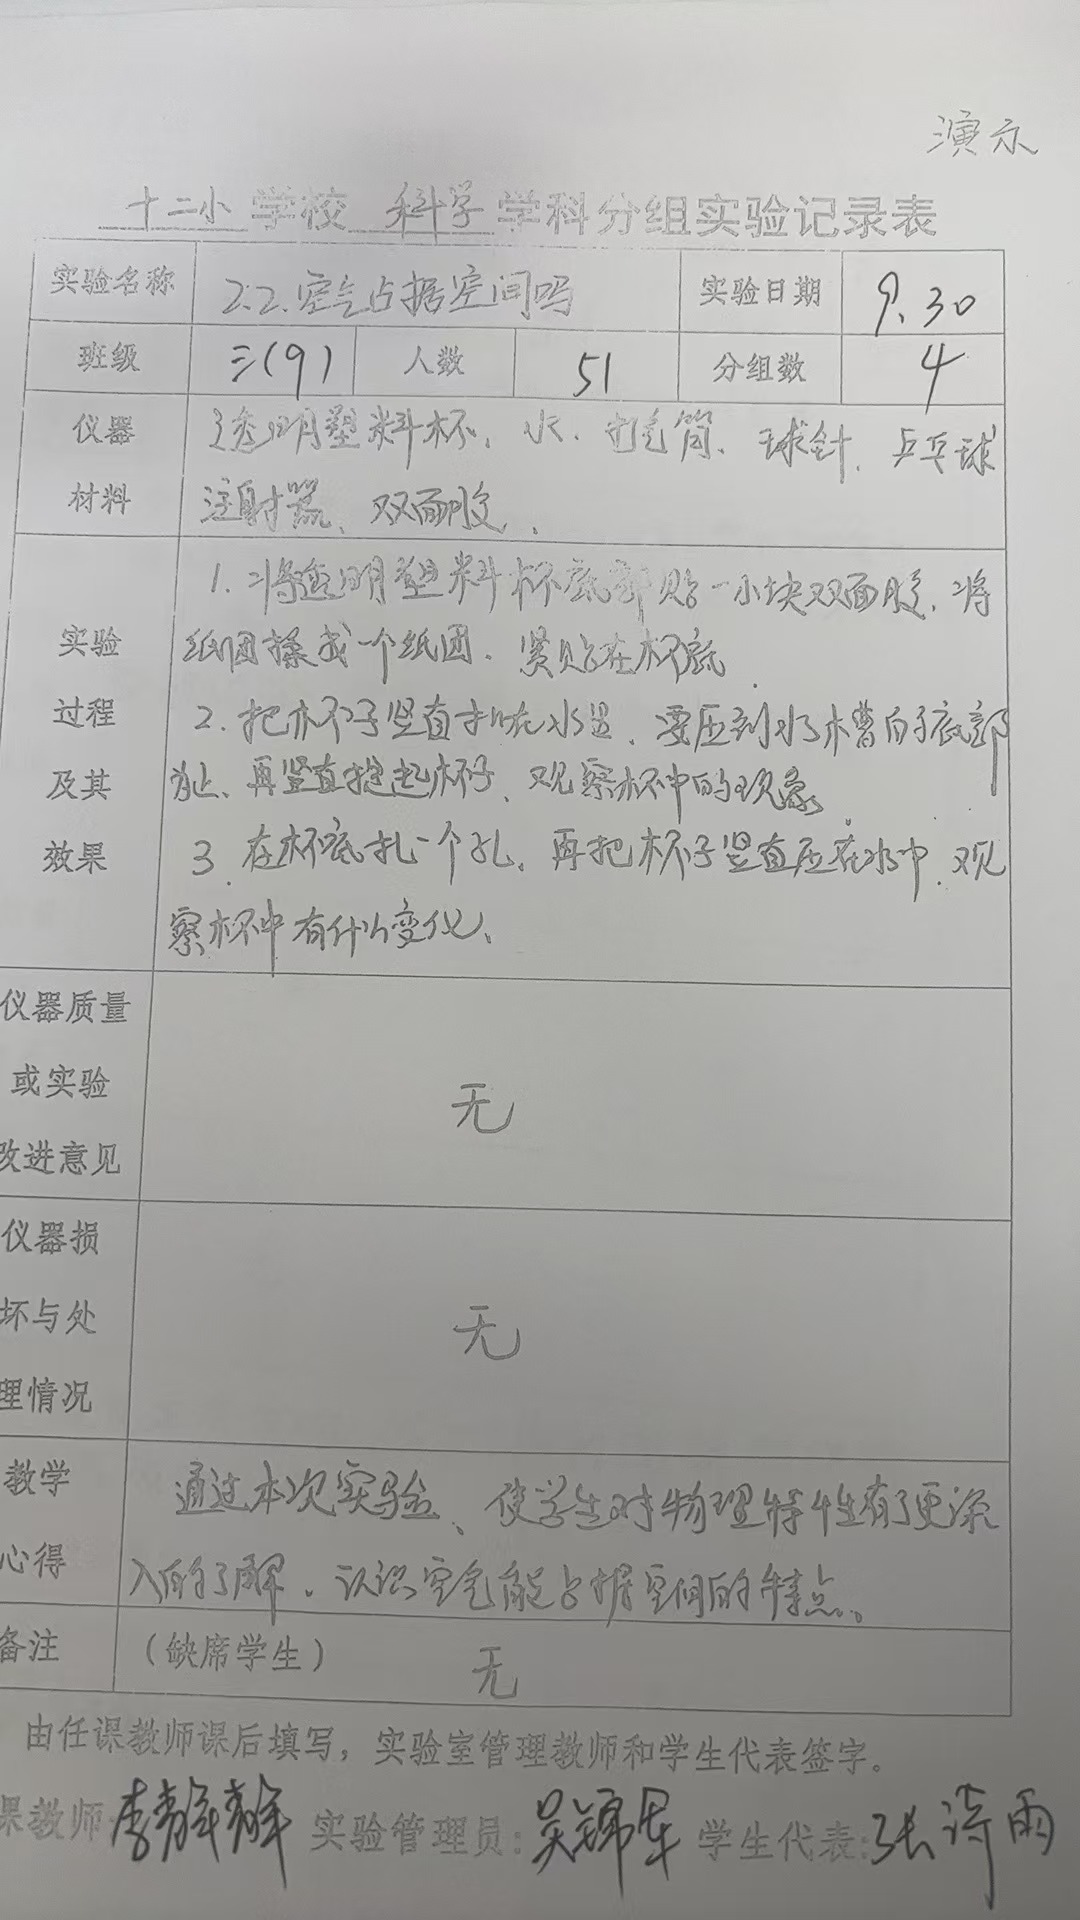 演示
十二小学校 科学学科分组实验记录表
实验名称 2.2.空气占据空间吗 实验日期 9.30
班级 三(9) 人数 51 分组数 4
仪器 透明塑料杯、水、打气筒、球针、乒乓球
材料 注射器、双面胶、
1.将透明塑料杯底部贴一小块双面胶,将
实验 纸团揉成一个纸团、紧贴在杯底.
过程 2.把杯子竖直扣在水里、要压到水槽的底部
及其 为止、再竖直提起杯子、观察杯中的现象。
效果 3.在杯底扎一个孔,再把杯子竖直压在水中.观
察杯中有什么变化、
仪器质量
或实验 无
改进意见
仪器损
坏与处 无
理情况
教学 通过本次实验、使学生对物理特性有了更深
心得 入的了解、认识空气能占据空间的特点。
备注 (缺席学生) 无
由任课教师课后填写,实验室管理教师和学生代表签字。
课教师 李 实验管理员:吴锦军 学生代表:张诗雨